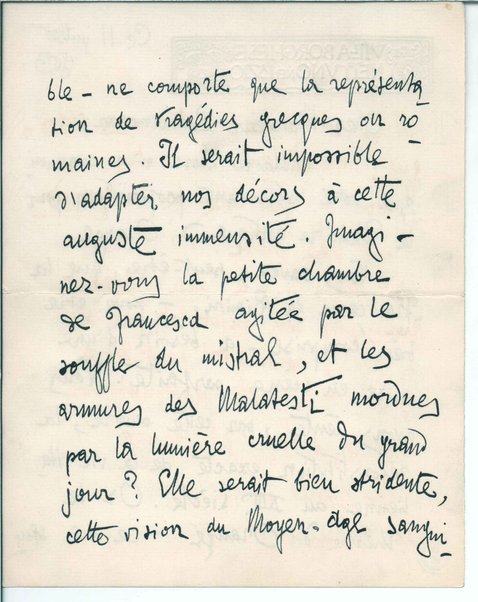 ble – ne comporte que la représenta
tion de tragédies grecques ou ro-
maines. Il serait impossible
d'adapter nos décors à cette
auguste immensité. Imagi-
nez-vous la petite chambre
de Francesca agitée par le
souffle du mistral, et les
armures des Malatesti mordues
par la lumière cruelle du grand
jour ? Elle serait bien stridente,
cette vision du Moyen-âge sangui-